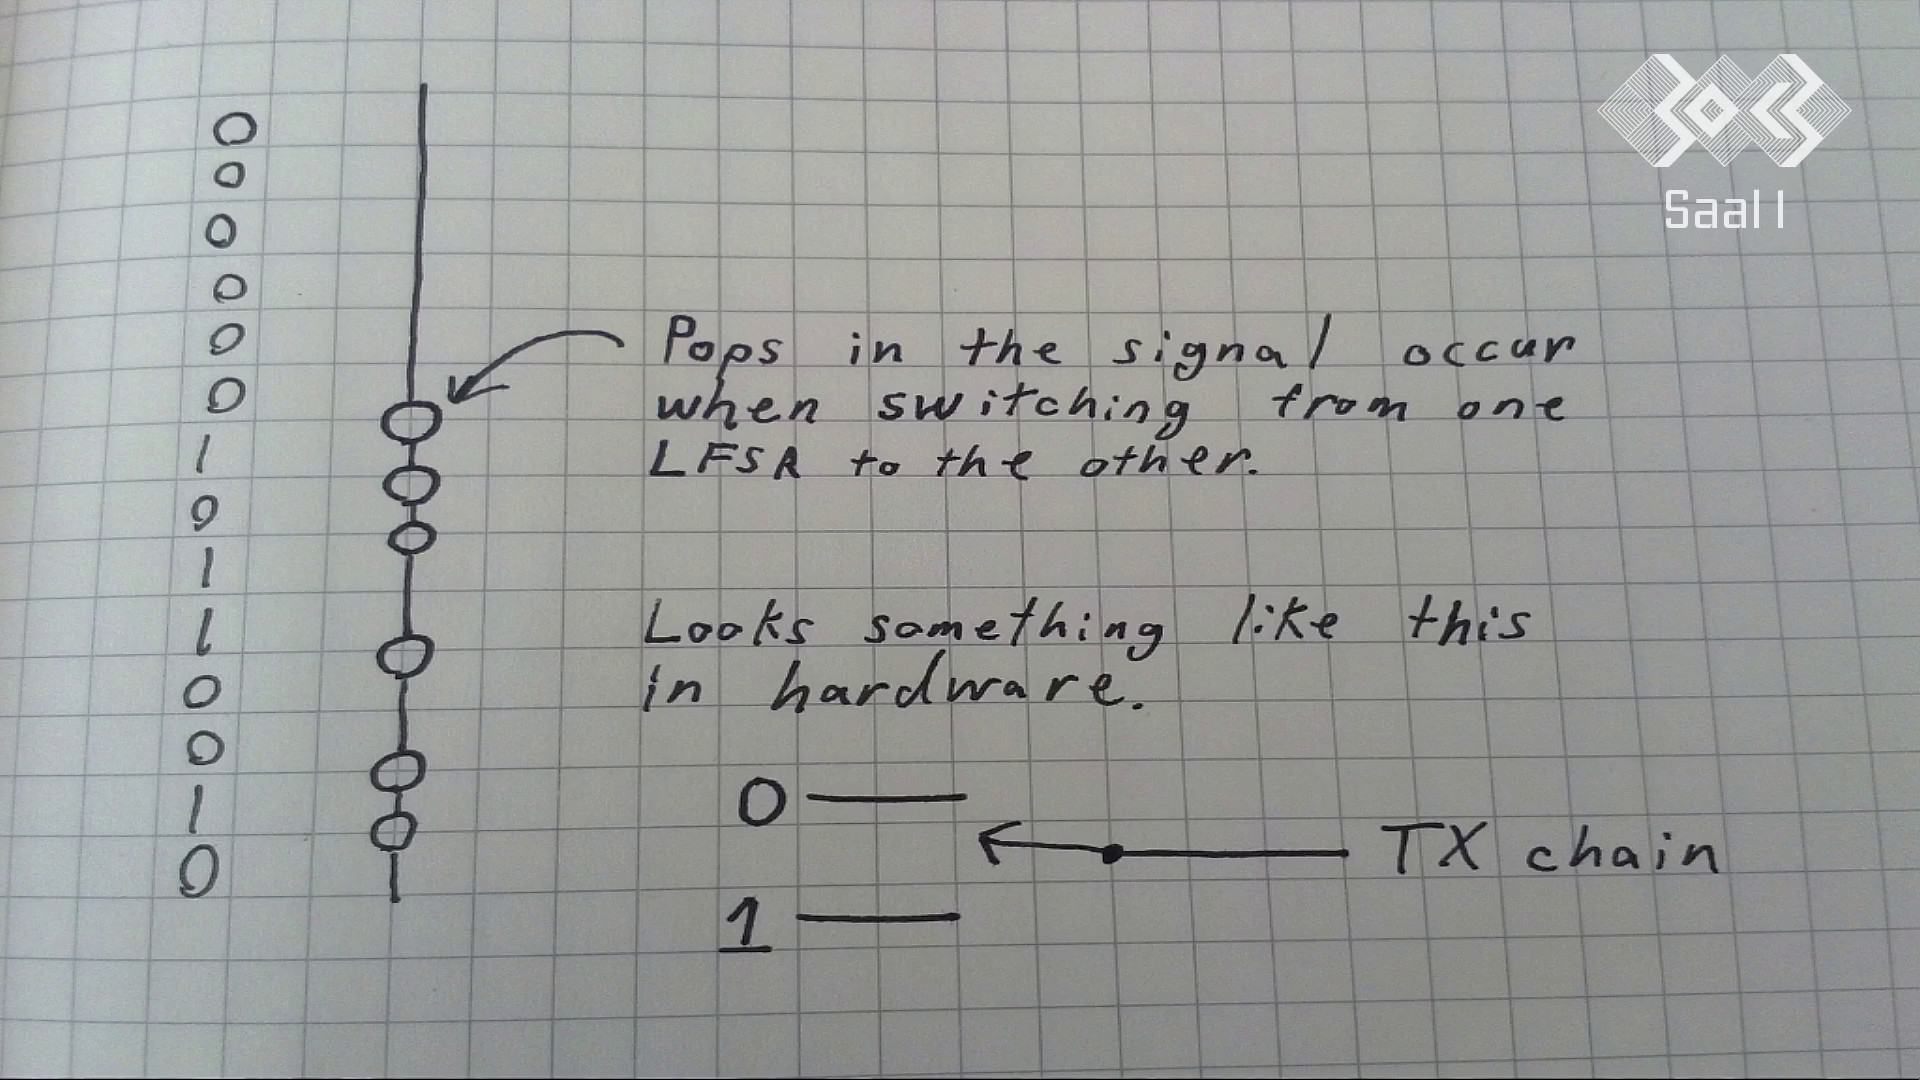 0
0
0
0
0
0
1
0
1
1
0
0
1
0
Pops in the signal occur
when switching from one
LFSR to the other.
Looks something like this
in hardware.
0
TX chain
1
Saal 1